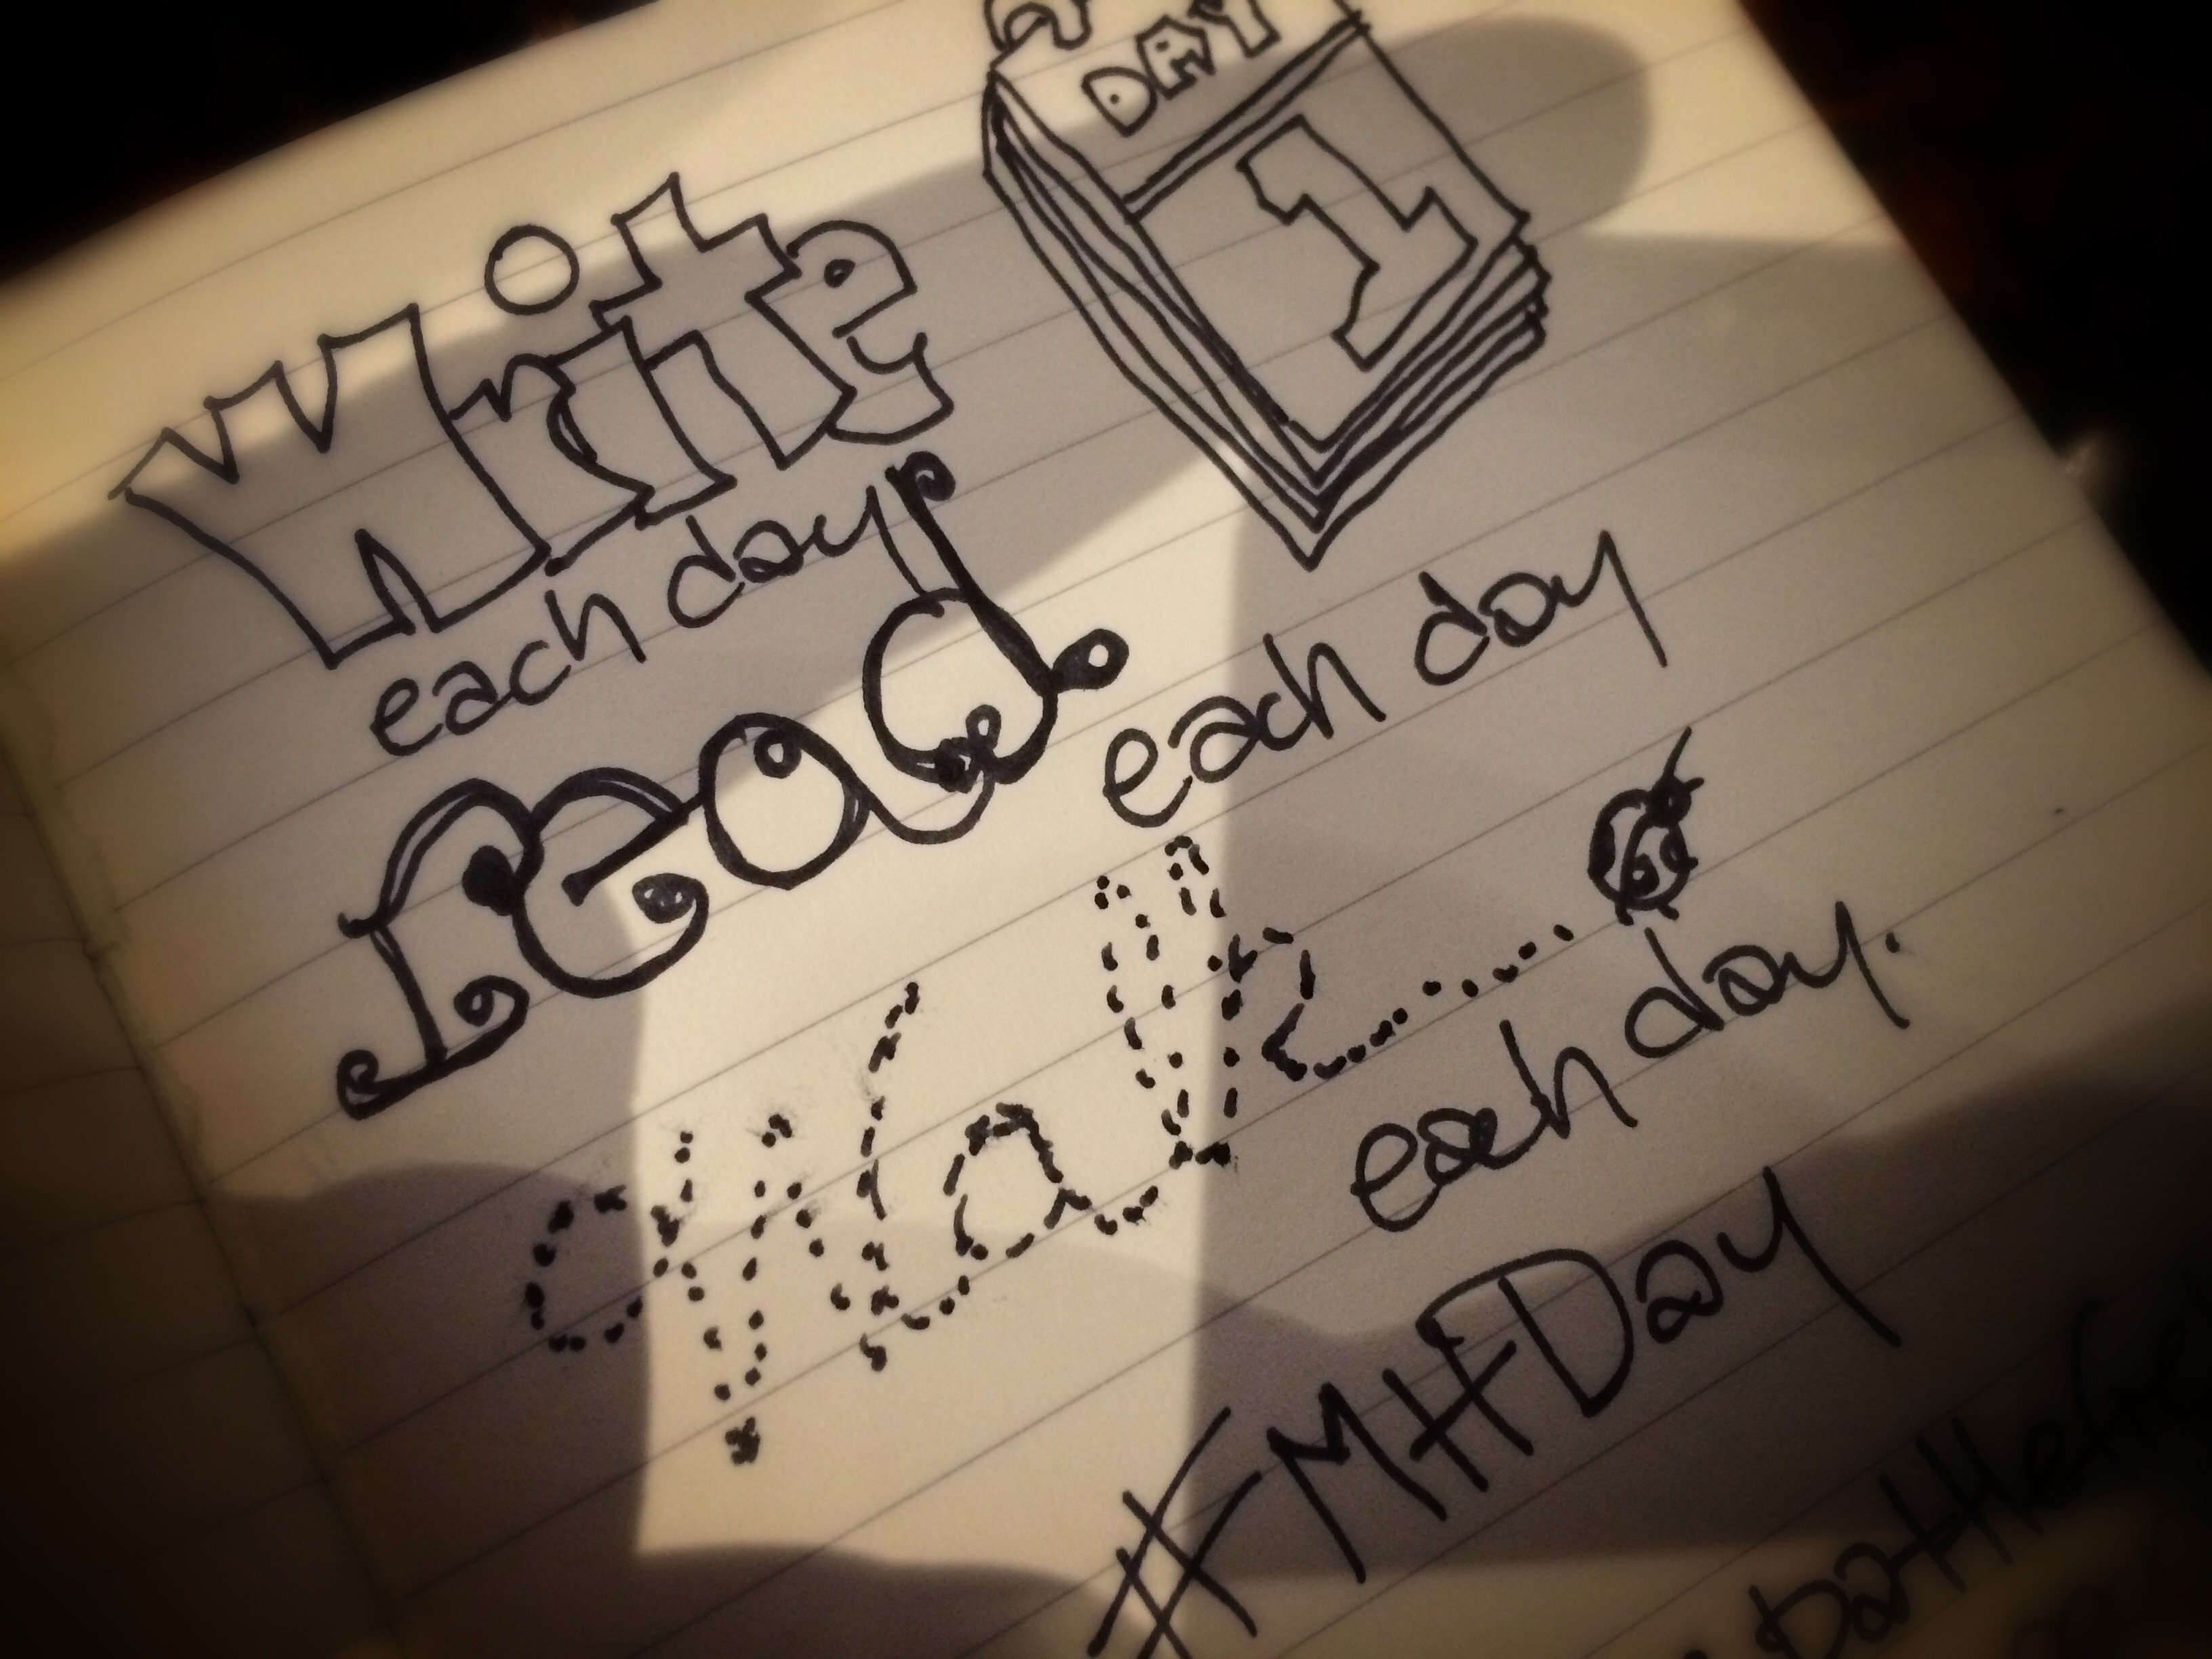 DAY
1
Write
each day
read
each day
Walk
each day.
#MHDay